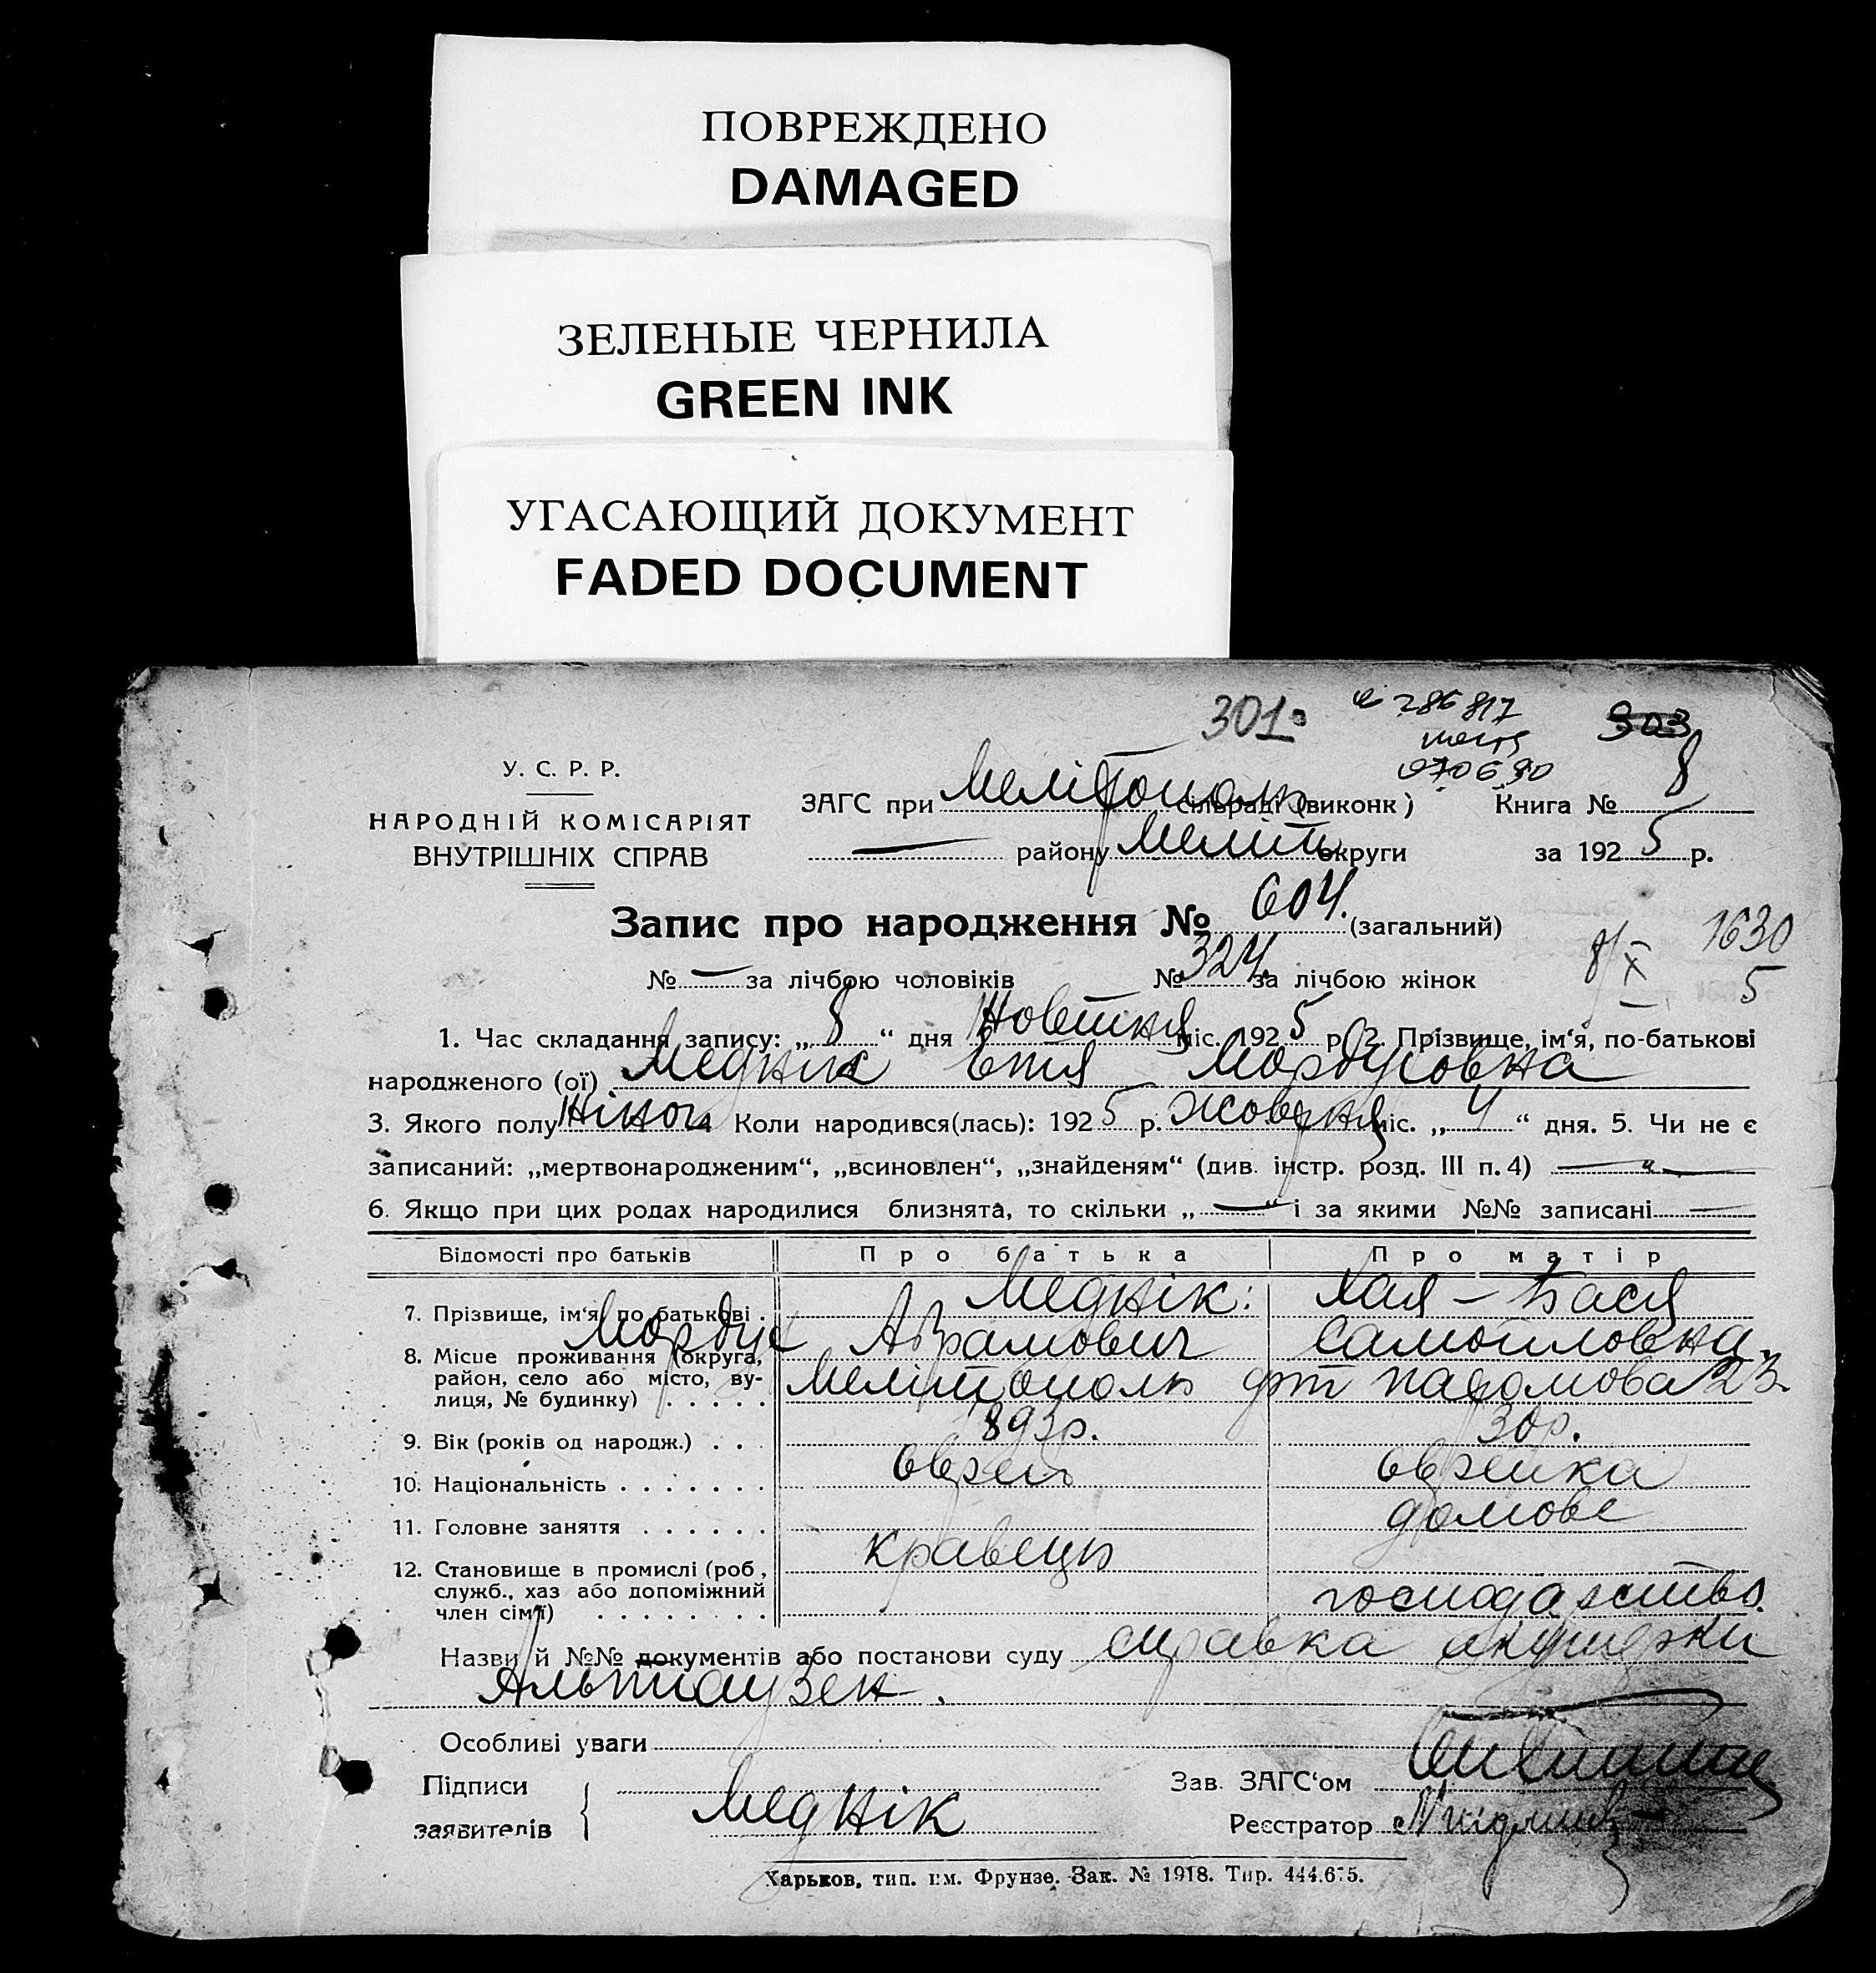 ПОВРЕЖДЕНО
DAMAGED
ЗЕЛЕНЫЕ ЧЕРНИЛА
GREEN INK
УГАСАЮЩИЙ ДОКУМЕНТ
FADED DOCUMENT
301 286817 303
070690
У. С. Р. Р.
НАРОДНІЙ КОМІСАРІЯТ
ВНУТРІШНІХ СПРАВ
ЗАГС при Мелітополь сільраді (виконк) Книга № 8
— району Меліт округи за 1925 р.
Запис про народження № 604. (загальний)
8/X 1630
5
№ — за лічбою чоловіків № 324. за лічбою жінок
1. Час складання запису: „ 8 “ дня Жовтня міс. 1925 р. 2. Прізвище, ім‘я, по-батькові
народженого (ої) Меднік Етя Мордуховна
3. Якого полу Жіноч. Коли народився(лась): 1925 р. Жовтня міс. „ 4 “ дня. 5. Чи не є
записаний: „мертвонародженим“, „всиновлен“, „знайденям“ (див. інстр. розд. III п. 4) — „ —
6. Якщо при цих родах народилися близнята, то скільки „ — “ і за якими №№ записані —
Відомості про батьків Про батька Про матір
7. Прізвище, ім‘я, по батькові . Меднік: Хая – Бася
Мордух Абрамович Самойловна.
8. Місце проживання (округа,
район, село або місто, ву-
лиця, № будинку) . . . . . Мелітополь 23.
9. Вік (років од народж.) . . . 1893р. 30р.
10. Національність . . . . . . . єврей єврейка
11. Головне заняття . . . . . . домове
кравець
12. Становище в промислі (роб,
служб., хаз або допоміжний
член сім‘ї) . . . . . . . . господарство.
Назви й №№ документів або постанови суду справка акушерки
Альтгаузен.
Особливі уваги
Підписи
заявителів { Меднік
Зав. ЗАГС‘ом
Реєстратор
Харьков, тип. им. Фрунзе. Зак. № 1918. Тир. 444.675.